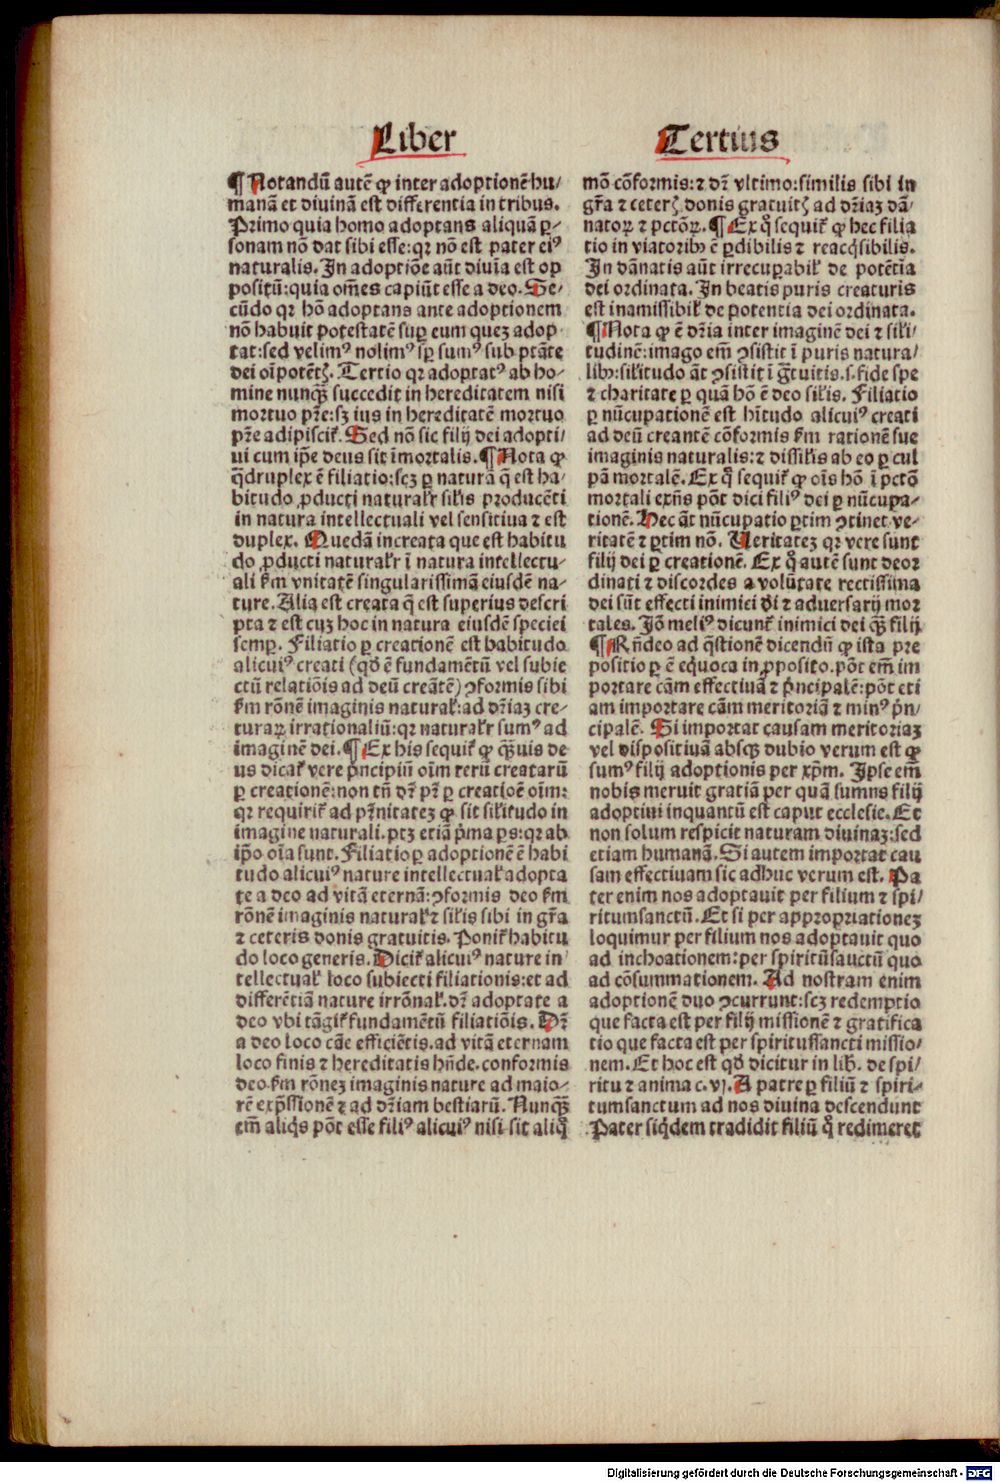 Liber Tertius
¶ Notandū autē ꝙ inter adoptionē hu/
manā et diuinā est differentia in tribus.
Primo quia homo adoptans aliquā ꝑ-
sonam nō dat sibi esse: qꝛ nō est pater eiꝰ
naturalis. In adoptiōe aūt diuīa est op
positū: quia om̄es capiūt esse a deo. Se/
cūdo qꝛ hō adoptans ante adoptionem
nō habuit potestatē suꝑ eum quez adop
tat: sed velimꝰ nolimꝰ sꝑ sumꝰ sub ptāte
dei oīpotētꝭ. Tertio qꝛ adoptatꝰ ab ho-
mine nunqꝫ̄ succedit in hereditatem nisi
mortuo pr̄e: sꝫ ius in hereditatē mortuo
pr̄e adipiscit᷑. Sed nō sic filij dei adopti/
ui cum ip̄e deus sit īmortalis. ¶ Nota ꝙ
q̄druplex ē filiatio: scꝫ ꝑ naturā q̄ est ha-
bitudo ꝓducti naturalr̄ sil̄is producēti
in natura intellectuali vel sensitiua ⁊ est
duplex. Quedā increata que est habitu
do ꝓducti naturalr̄ ī natura intellectu-
ali ẜm vnitatē singularissimā eiusdē na-
ture. Alia est creata q̄ est superius descri
pta ⁊ est cuꝫ hoc in natura eiusdē speciei
semꝑ. Filiatio ꝑ creationē est habitudo
alicuiꝰ creati (qd̄ ē fundamētū vel subie
ctū relatiōis ad deū creātē) ꝯformis sibi
ẜm rōnē imaginis natural̄: ad dr̄iaz cre-
turaꝝ irrationaliū: qꝛ naturalr̄ sumꝰ ad
imaginē dei. ¶ Ex his sequit᷑ ꝙ qꝫ̄uis de
us dicat᷑ vere p̄ncipiū oīm rerū creatarū
ꝑ creationē: non tn̄ dr̄ pr̄ ꝑ creatioē oīm:
qꝛ requirit᷑ ad pr̄nitatez ꝙ sit sil̄itudo in
imagine naturali. ptꝫ etiā p̄ma ꝑs: qꝛ ab
ip̄o oīa sunt. Filiatio ꝑ adoptionē ē habi
tudo alicuiꝰ nature intellectual̄ adopta
te a deo ad vitā eternā: ꝯformis deo ẜm
rōnē imaginis natural̄ ⁊ sil̄is sibi in gr̄a
⁊ ceteris donis gratuitis. Ponit᷑ habitu
do loco generis. Dicit᷑ alicuiꝰ nature in/
tellectual̄ loco subiecti filiationis: et ad
differētiā nature irrōnal̄. dr̄ adoptate a
deo vbi tāgit᷑ fundamētū filiatiōis. Dr̄
a deo loco cāe efficiētis. ad vitā eternam
loco finis ⁊ hereditatis hn̄de. conformis
deo ẜm rōnez imaginis nature ad maio-
rē exp̄ssionē ⁊ ad dr̄iam bestiarū. Nunqꝫ̄
em̄ aliqͥs pōt esse filiꝰ alicuiꝰ nisi sit aliqͦ
mō cōformis: ⁊ dr̄ vltimo: similis sibi in
gr̄a ⁊ ceterꝭ donis gratuitꝭ ad dr̄iaꝫ dā/
natoꝝ ⁊ pctōꝝ. ¶ Ex qͦ sequit᷑ ꝙ hec filia
tio in viatoribꝫ ē ꝑdibilis ⁊ reacqͥsibilis.
In dānatis aūt irrecuꝑabil̄ de potētia
dei ordinata. In beatis puris creaturis
est inamissibil̄ de potentia dei ordinata.
¶ Nota ꝙ ē dr̄ia inter imaginē dei ⁊ sil̄i/
tudinē: imago em̄ ꝯsistit ī puris natura/
libꝫ: sil̄itudo āt ꝯsistit ī gͣtuitis. s. fide spe
⁊ charitate ꝑ quā hō ē deo sil̄is. Filiatio
ꝑ nūcupationē est hītudo alicuiꝰ creati
ad deū creantē cōformis ẜm rationē sue
imaginis naturalis: ⁊ dissil̄is ab eo ꝑ cul
pā mortalē. Ex qͦ sequit᷑ ꝙ oīs hō ī pctō
mortali exn̄s pōt dici filiꝰ dei ꝑ nūcupa-
tionē. Hec āt nūcupatio ꝑtim ꝯtinet ve-
ritatē ⁊ ꝑtim nō. Ueritatez qꝛ vere sunt
filij dei ꝑ creationē. Ex qͦ autē sunt deor
dinati ⁊ discordes a volūtate rectissima
dei sūt effecti inimici dī ⁊ aduersarij mor
tales. Iō meliꝰ dicunt᷑ inimici dei qꝫ̄ filij
¶ Rn̄deo ad q̄stionē dicendū ꝙ ista pre
positio ꝑ ē eqͥuoca in ꝓposito. pōt em̄ im
portare cām effectiuā ⁊ p̄ncipalē: pōt eti
am importare cām meritoriā ⁊ minꝰ p̄n/
cipalē. Si importat causam meritoriaꝫ
vel dispositiuā absqꝫ dubio verum est ꝙ
sumꝰ filij adoptionis per xp̄m. Ipse em̄
nobis meruit gratiā per quā sumus filij
adoptiui inquantū est caput ecclesie. Et
non solum respicit naturam diuinaꝫ: sed
etiam humanā. Si autem importat cau
sam effectiuam sic adhuc verum est. Pa
ter enim nos adoptauit per filium ⁊ spi/
ritumsanctū. Et si per appropriationeꝫ
loquimur per filium nos adoptauit quo
ad inchoationem: per spiritūsanctū quo
ad cōsummationem. Ad nostram enim
adoptionē duo ꝯcurrunt: scꝫ redemptio
que facta est per filij missionē ⁊ gratifica
tio que facta est per spiritussancti missio/
nem. Et hoc est qd̄ dicitur in lib. de spi/
ritu ⁊ anima c. vj. A patre ꝑ filiū ⁊ spiri-
tumsanctum ad nos diuina descendunt
Pater siqͥdem tradidit filiū qͦ redimeret
Digitalisierung gefördert durch die Deutsche Forschungsgemeinschaft - DFG